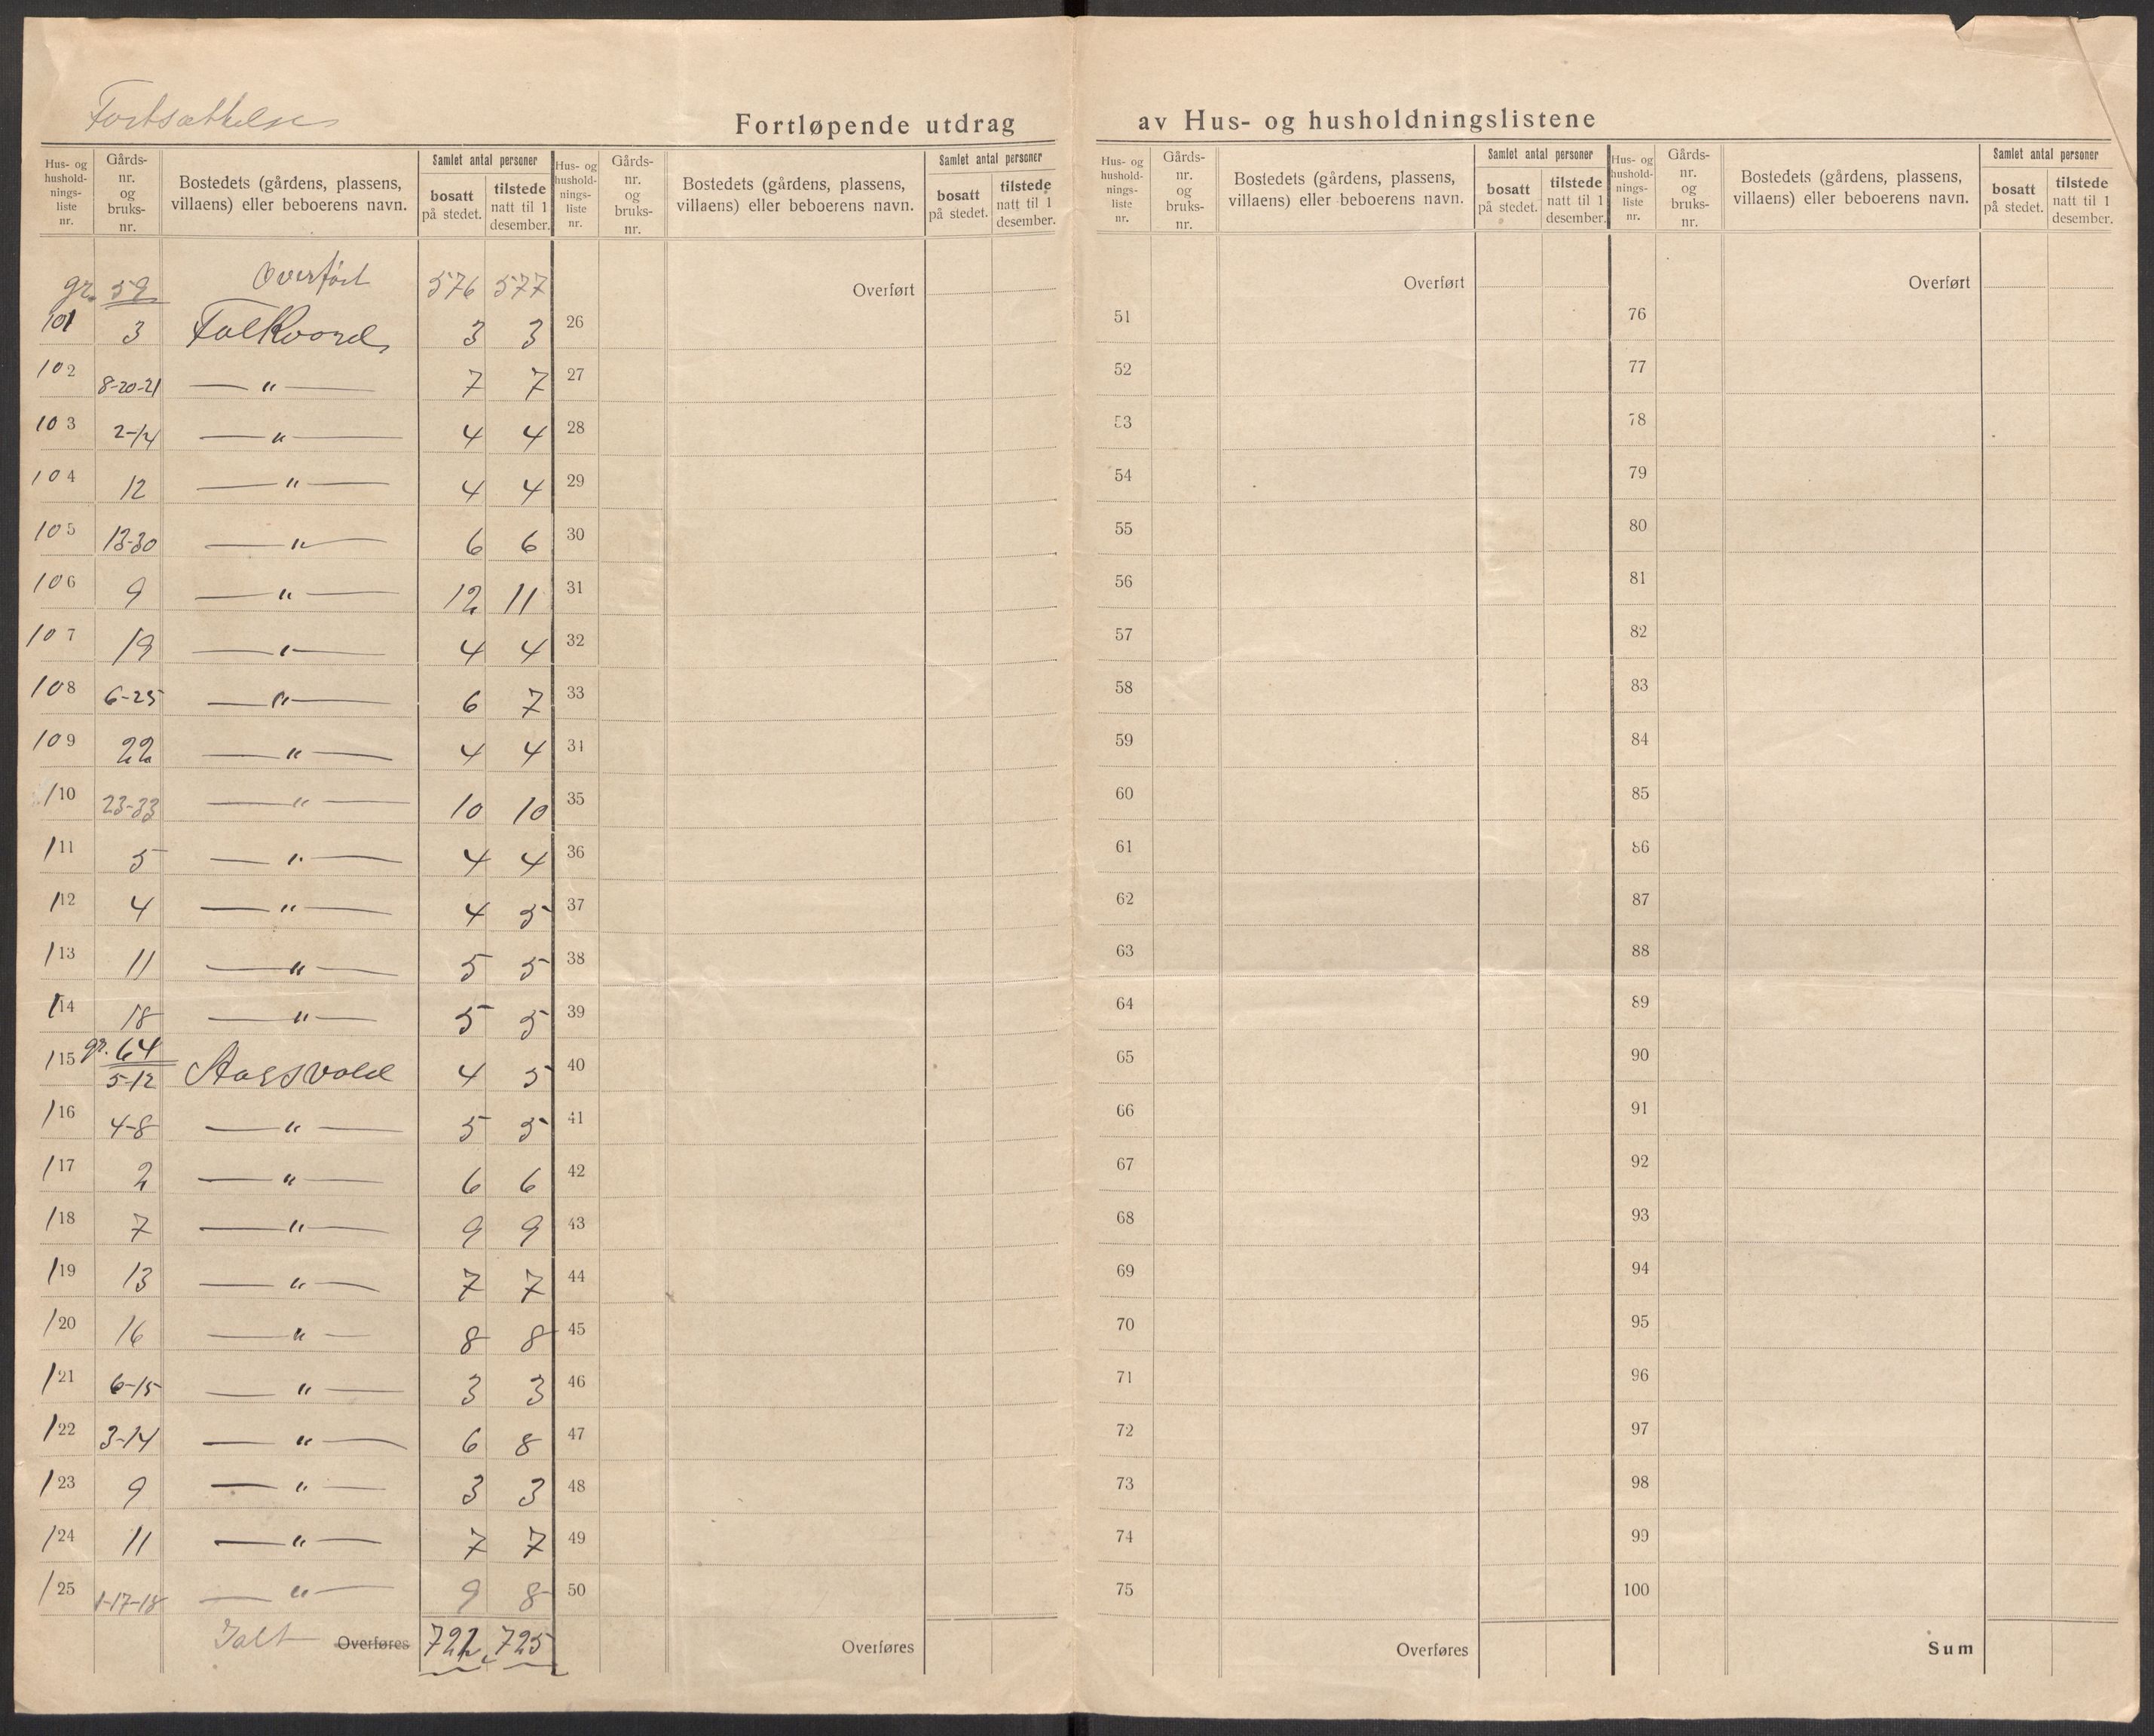 Fortsættelse
Fortløpende utdrag av Hus- og husholdningslistene
Hus- og hushold- nings- liste nr. | Gårds- nr. og bruks- nr. | Bostedets (gårdens, plassens, villaens) eller beboerens navn. | Samlet antal personer | bosatt på stedet. | tilstede natt til 1 desember.
Hus- og hushold- nings- liste nr. | Gårds- nr. og bruks- nr. | Bostedets (gårdens, plassens, villaens) eller beboerens navn. | Samlet antal personer | bosatt på stedet. | tilstede natt til 1 desember.
Hus- og hushold- nings- liste nr. | Gårds- nr. og bruks- nr. | Bostedets (gårdens, plassens, villaens) eller beboerens navn. | Samlet antal personer | bosatt på stedet. | tilstede natt til 1 desember.
Hus- og hushold- nings- liste nr. | Gårds- nr. og bruks- nr. | Bostedets (gårdens, plassens, villaens) eller beboerens navn. | Samlet antal personer | bosatt på stedet. | tilstede natt til 1 desember.
gr. 59 Overført 576 577
101 3 Falkvord 3 3
102 8-20-21 — " — 7 7
103 2-14 — " — 4 4
104 12 — " — 4 4
105 13-30 — " — 6 6
106 9 — " — 12 11
107 19 — " — 4 4
108 6-25 — " — 6 7
109 22 — " — 4 4
110 23-33 — " — 10 10
111 5 — " — 4 4
112 4 — " — 4 5
113 11 — " — 5 5
114 18 — " — 5 5
gr. 64
115 5-12 Aassvold 4 5
116 4-8 — " — 5 5
117 2 — " — 6 6
118 7 — " — 9 9
119 13 — " — 7 7
120 16 — " — 8 8
121 6-15 — " — 3 3
122 3-14 — " — 6 8
123 9 — " — 3 3
124 11 — " — 7 7
125 1-17-18 — " — 9 8
Ialt Overføres 721 725
Overført
26
27
28
29
30
31
32
33
34
35
36
37
38
39
40
41
42
43
44
45
46
47
48
49
50
Overføres
Overført
51
52
53
54
55
56
57
58
59
60
61
62
63
64
65
66
67
68
69
70
71
72
73
74
75
Overføres
Overført
76
77
78
79
80
81
82
83
84
85
86
87
88
89
90
91
92
93
94
95
96
97
98
99
100
Sum